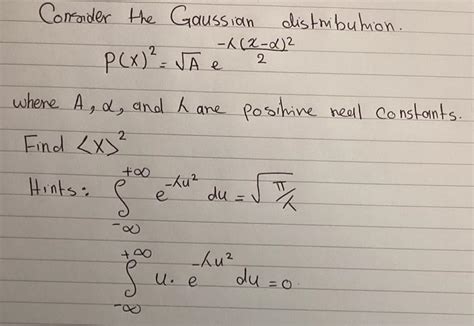 Consider the Gaussian distribution.
P(x)² = √A e^(-λ(x-α)²/2)
where A, α, and λ are positive real constants.
Find <X>²
Hints: ∫_{-∞}^{+∞} e^{-λu²} du = √(π/λ)
∫_{-∞}^{+∞} u. e^{-λu²} du = 0